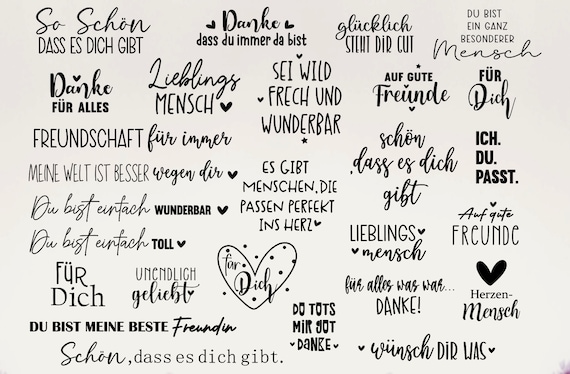 So Schön
DASS ES DICH GIBT
Danke
dass du immer da bist
glücklich
STEHT DIR GUT
DU BIST
EIN GANZ
BESONDERER
Mensch
Danke
FÜR ALLES
Lieblings
MENSCH
SEI WILD
FRECH UND
WUNDERBAR
AUF GUTE
Freunde
FÜR
Dich
FREUNDSCHAFT für immer
schön
,dass es dich
gibt
ICH.
DU.
PASST.
MEINE WELT IST BESSER wegen dir
ES GIBT
MENSCHEN,DIE
PASSEN PERFEKT
INS HERZ
Du bist einfach WUNDERBAR
Auf gute
FREUNDE
Du bist einfach TOLL
LIEBLINGS
mensch
FÜR
Dich
UNENDLICH
geliebt
für
Dich
für alles war war...
DANKE!
Herzen-
Mensch
DU BIST MEINE BESTE Freundin
DU TUTS
MIR GUT
DANKE
Schön,dass es dich gibt.
wünsch DIR WAS